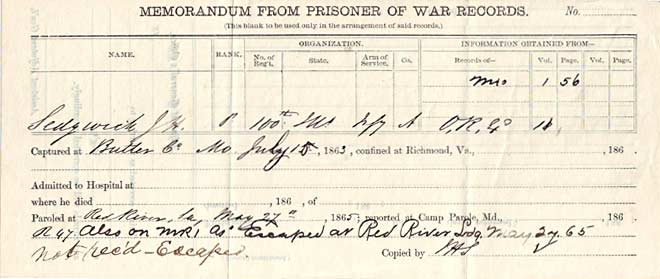 MEMORANDUM FROM PRISONER OF WAR RECORDS. No.
(This blank to be used only in the arrangement of said records.)
NAME. RANK. ORGANIZATION. INFORMATION OBTAINED FROM—
No. of Reg't. State. Arm of Service. Co. Records of— Vol. Page. Vol. Page.
Mo 1 56
Sedgwick J. H. P 100th Ills Inf A
Captured at Butler Co Mo. July 15, 1863, confined at Richmond, Va., , 186 .
Admitted to Hospital at
where he died , 186 , of
Paroled at Red River, La, May 27", 1865; reported at Camp Parole, Md., , 186 .
Also on MR1 as Escaped at Red River Ldg May 27. 65
Not rec'd - Escaped
Copied by